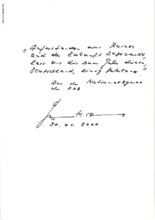 "Auferstanden aus Ruinen
und der Zukunft zugewandt,
lass uns dir zum Guten dienen,
Deutschland, einig Vaterland"
Aus der Nationalhymne
der DDR
2000